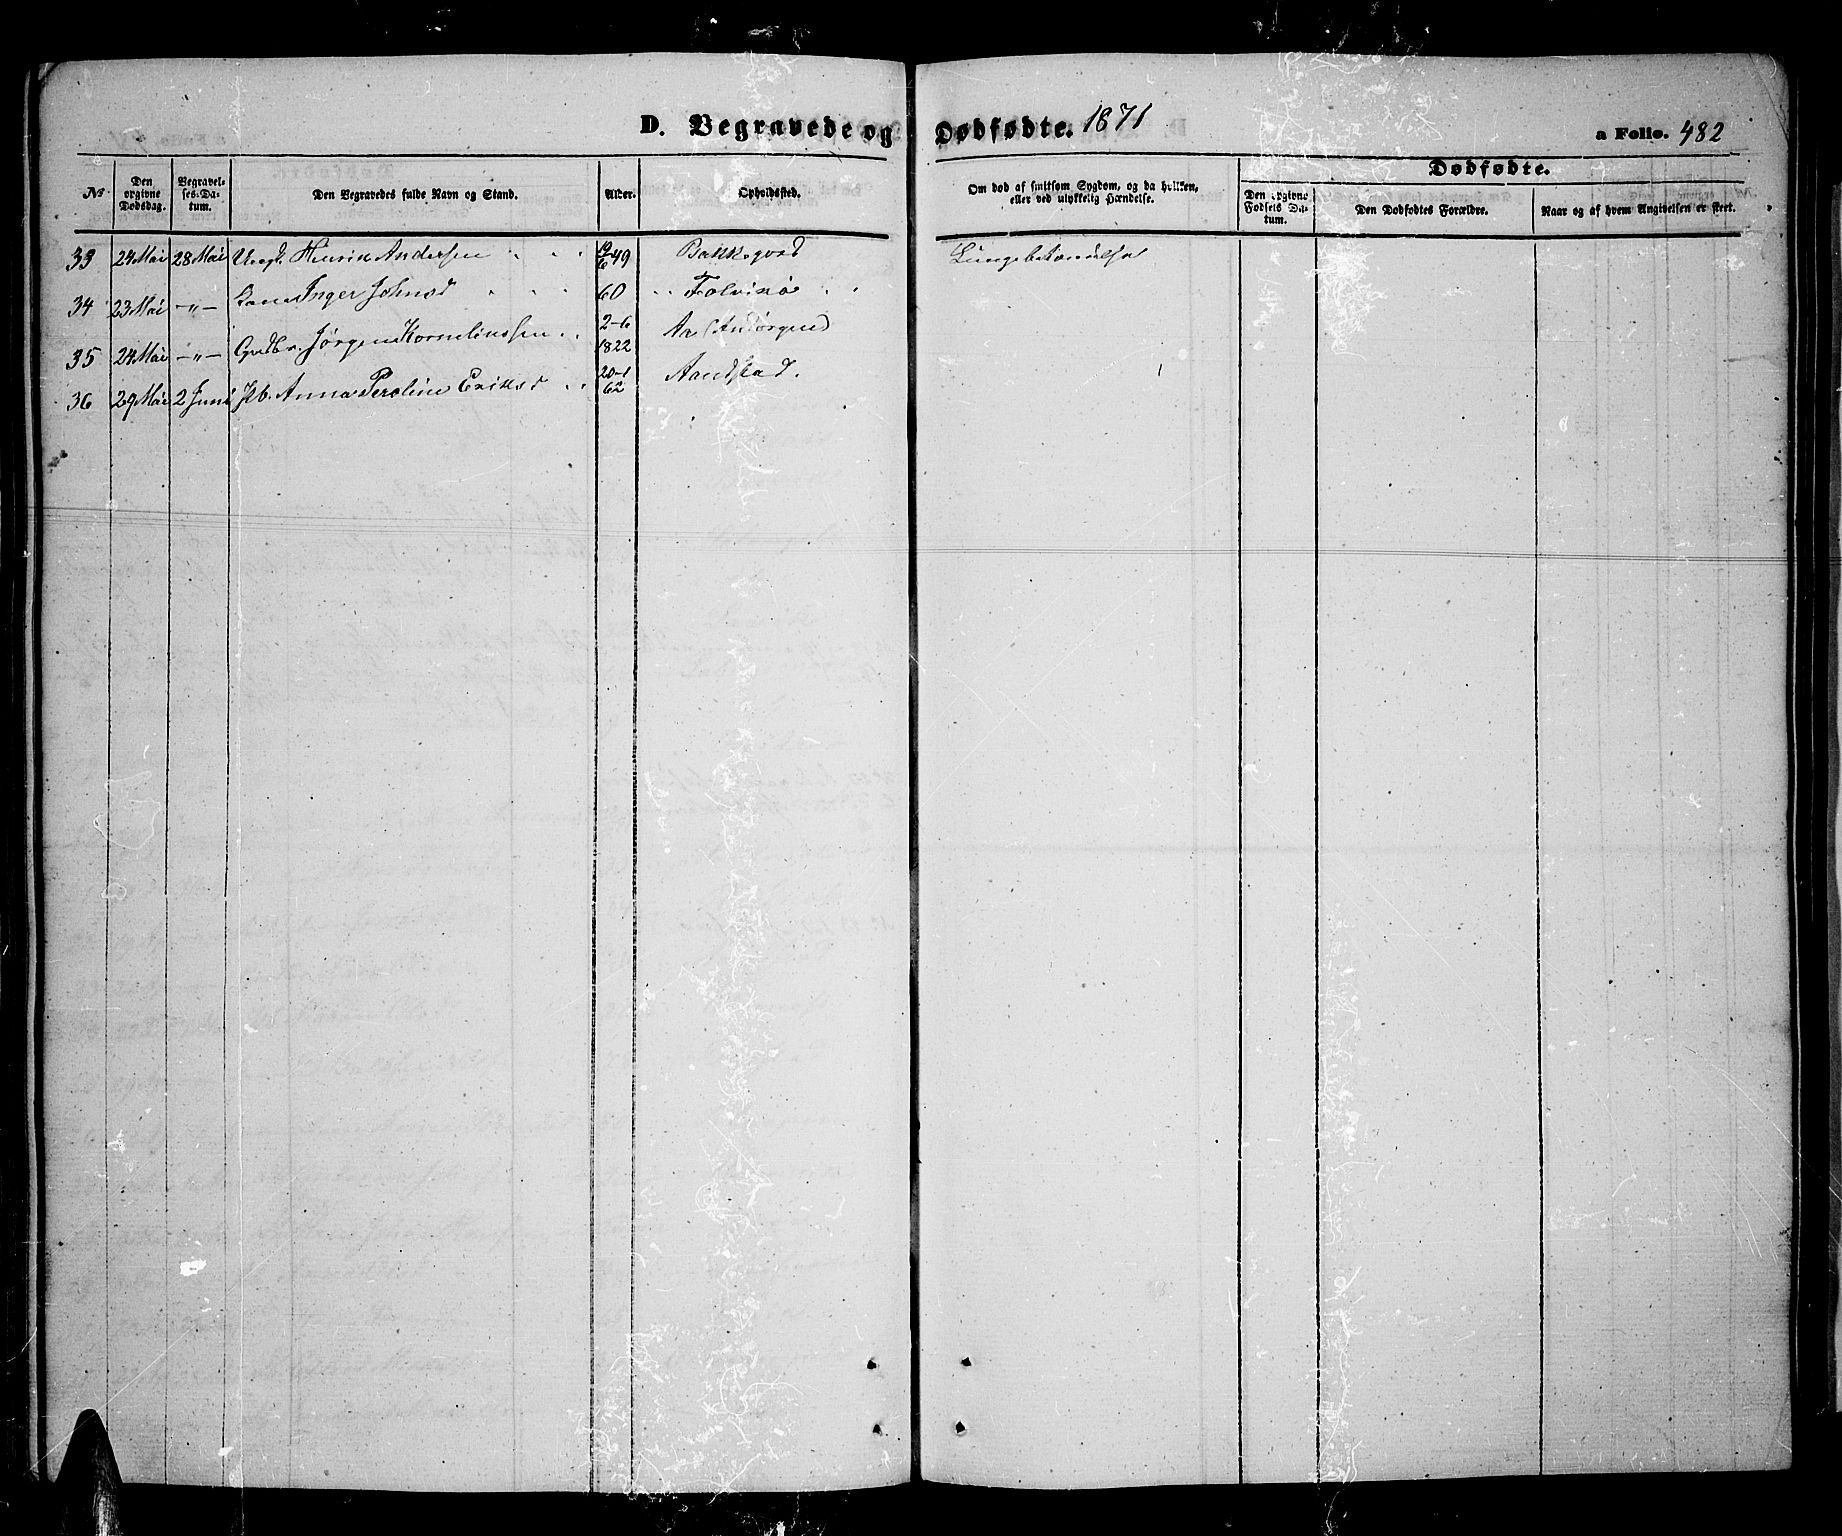 D. Begravede og Dødfødte. 1871
a Folio. 482
No
Den opgivne Dødsdag.
Begravelses-Datum.
Den Begravedes fulde Navn og Stand.
Alder.
Opholdssted.
Om død af smitsom Sygdom, og da hvilken, eller ved ulykkelig Hændelse.
Dødfødte.
Den opgivne Fødsels Datum.
Den Dødfødtes Forældre.
Naar og af hvem Angivelsen er skeet.
33 24 Mai 28 Mai Ungk. Henrik Andersen 49 Lungebetændelse
34 23 Mai –„– Kone Inger Johnsd 60
35 24 Mai –„– Gudbr. Jørgen Kornelinssen 2-6 1822
36 29 Mai 2 Juni Anna Peroline Eriksd 20-1 62 Aandstad.